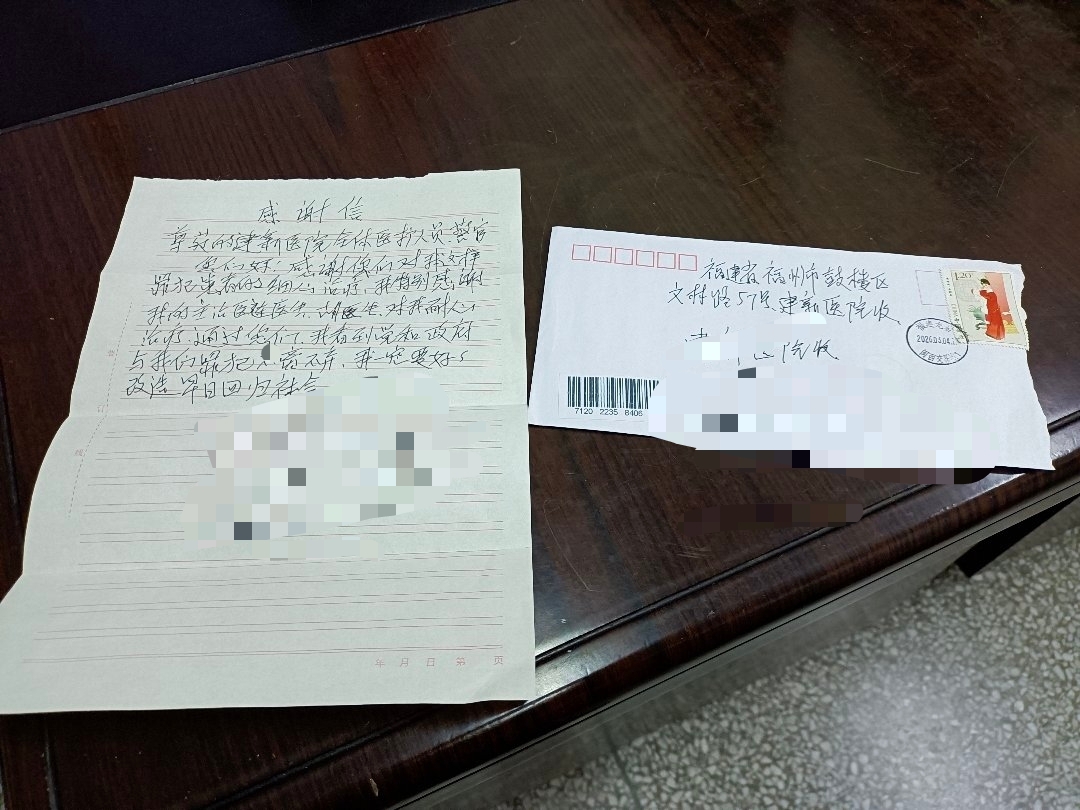 感谢信
尊敬的建新医院全体医护人员警官
你们好!感谢你们对我这样
罪犯患者的细心治疗,我特别感谢
我的主治医程医生,胡医生,对我耐心
治疗,通过你们,我看到党和政府
与我们罪犯不离不弃,我定要好好
改造早日回归社会
年 月 日 第 页
福建省福州市鼓楼区
文林路57号建新医院收
院收
1.20
2026.03.04
7120 2235 8406